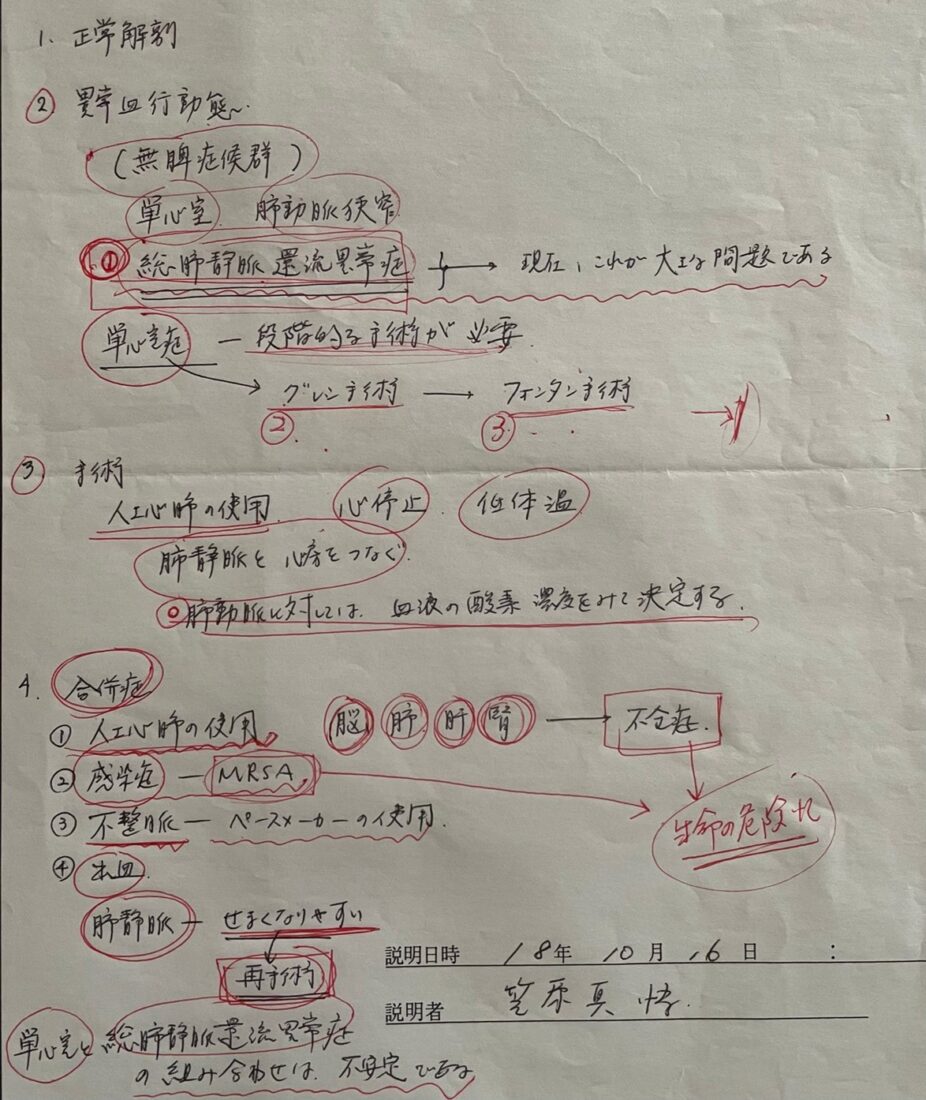 1. 正常解剖
② 異常血行動態
(無脾症候群)
単心室 肺動脈狭窄
① 総肺静脈還流異常症 → 現在、これが大きな問題である
単心室症 ー 段階的な手術が必要
→ グレン手術 → フォンタン手術 →
② ③
③ 手術
人工心肺の使用 心停止. 低体温
肺静脈と心房をつなぐ.
○肺動脈に対しては、血液の酸素濃度をみて決定する.
4. 合併症
① 人工心肺の使用. 脳 肺 肝 腎 → 不全症.
② 感染症 ー MRSA. → 生命の危険性
③ 不整脈 ー ペースメーカーの使用.
④ 出血.
肺静脈 ー せまくなりやすい
再手術
説明日時 18年 10月 16日 :
説明者 笠原真悟.
単心室と総肺静脈還流異常症
の組み合わせは、不安定である